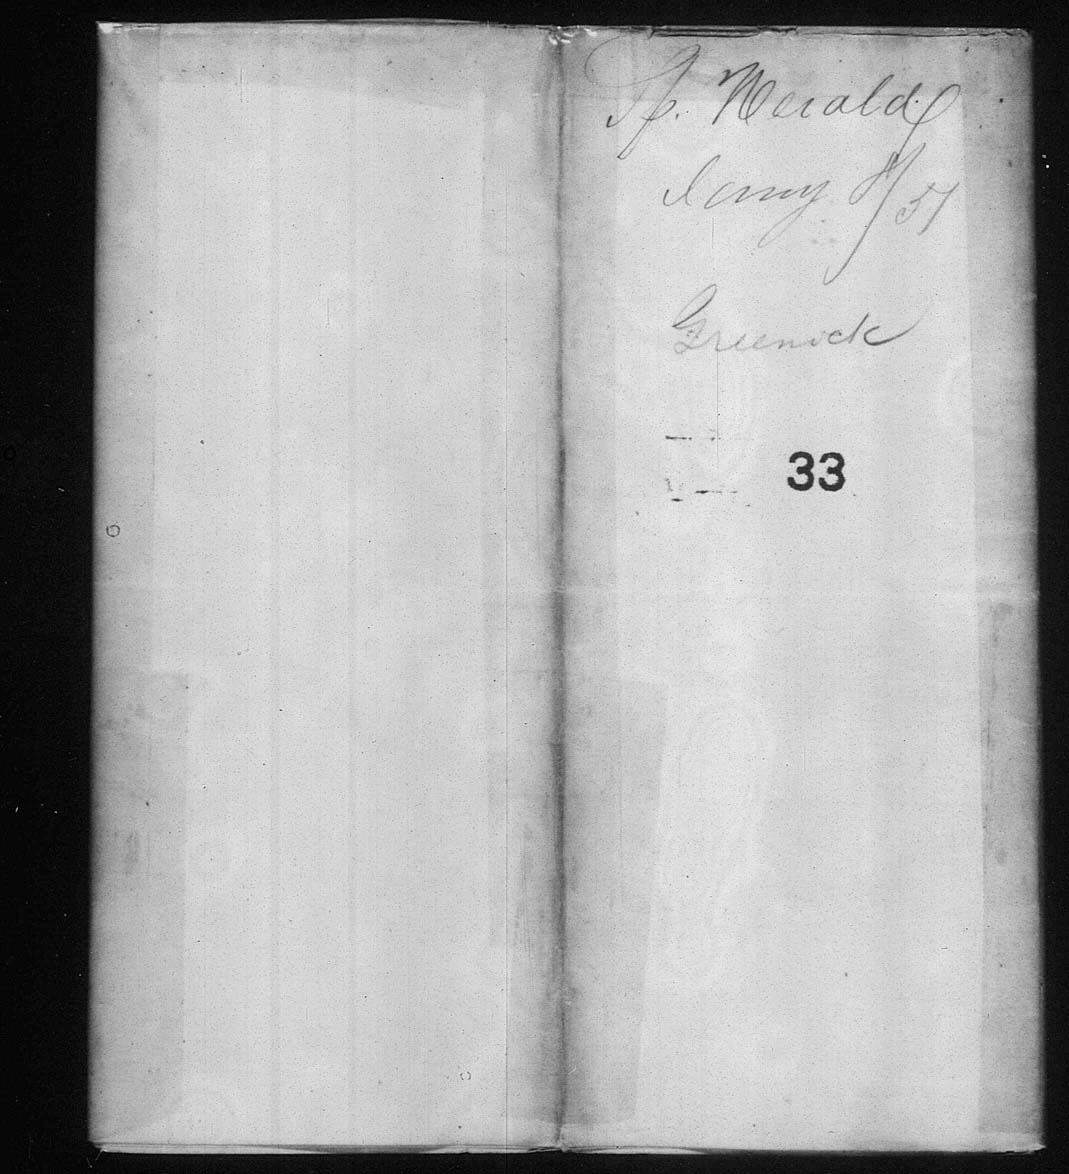 Herald
Jany 8/51
Greenock
33